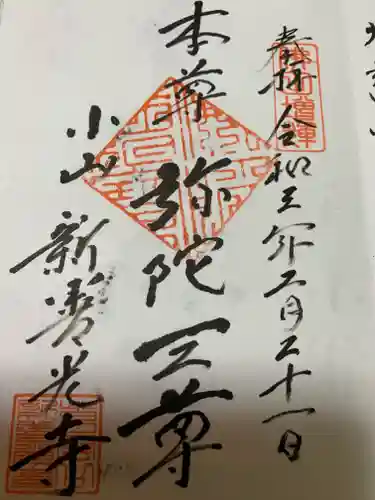 奉拝 令和三年二月二十一日
本尊 弥陀三尊
小山 新善光寺